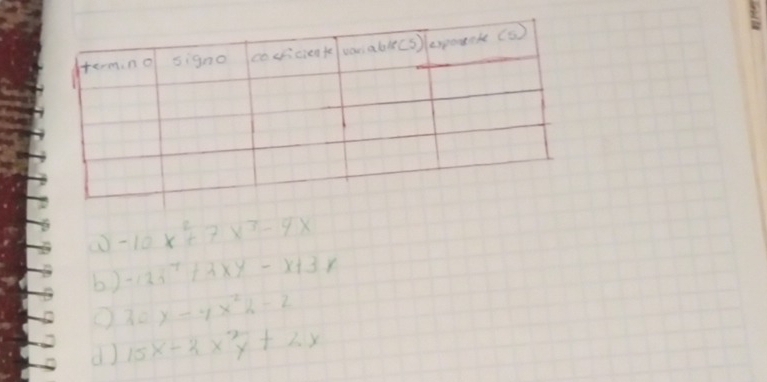 termino signo coeficiente variable(s) exponente (s)
a) -10x² + 7x³ - 9x
b) + 2xy - x+3
c) 20x - 4x²
d) 15x - 2x²y + 2x